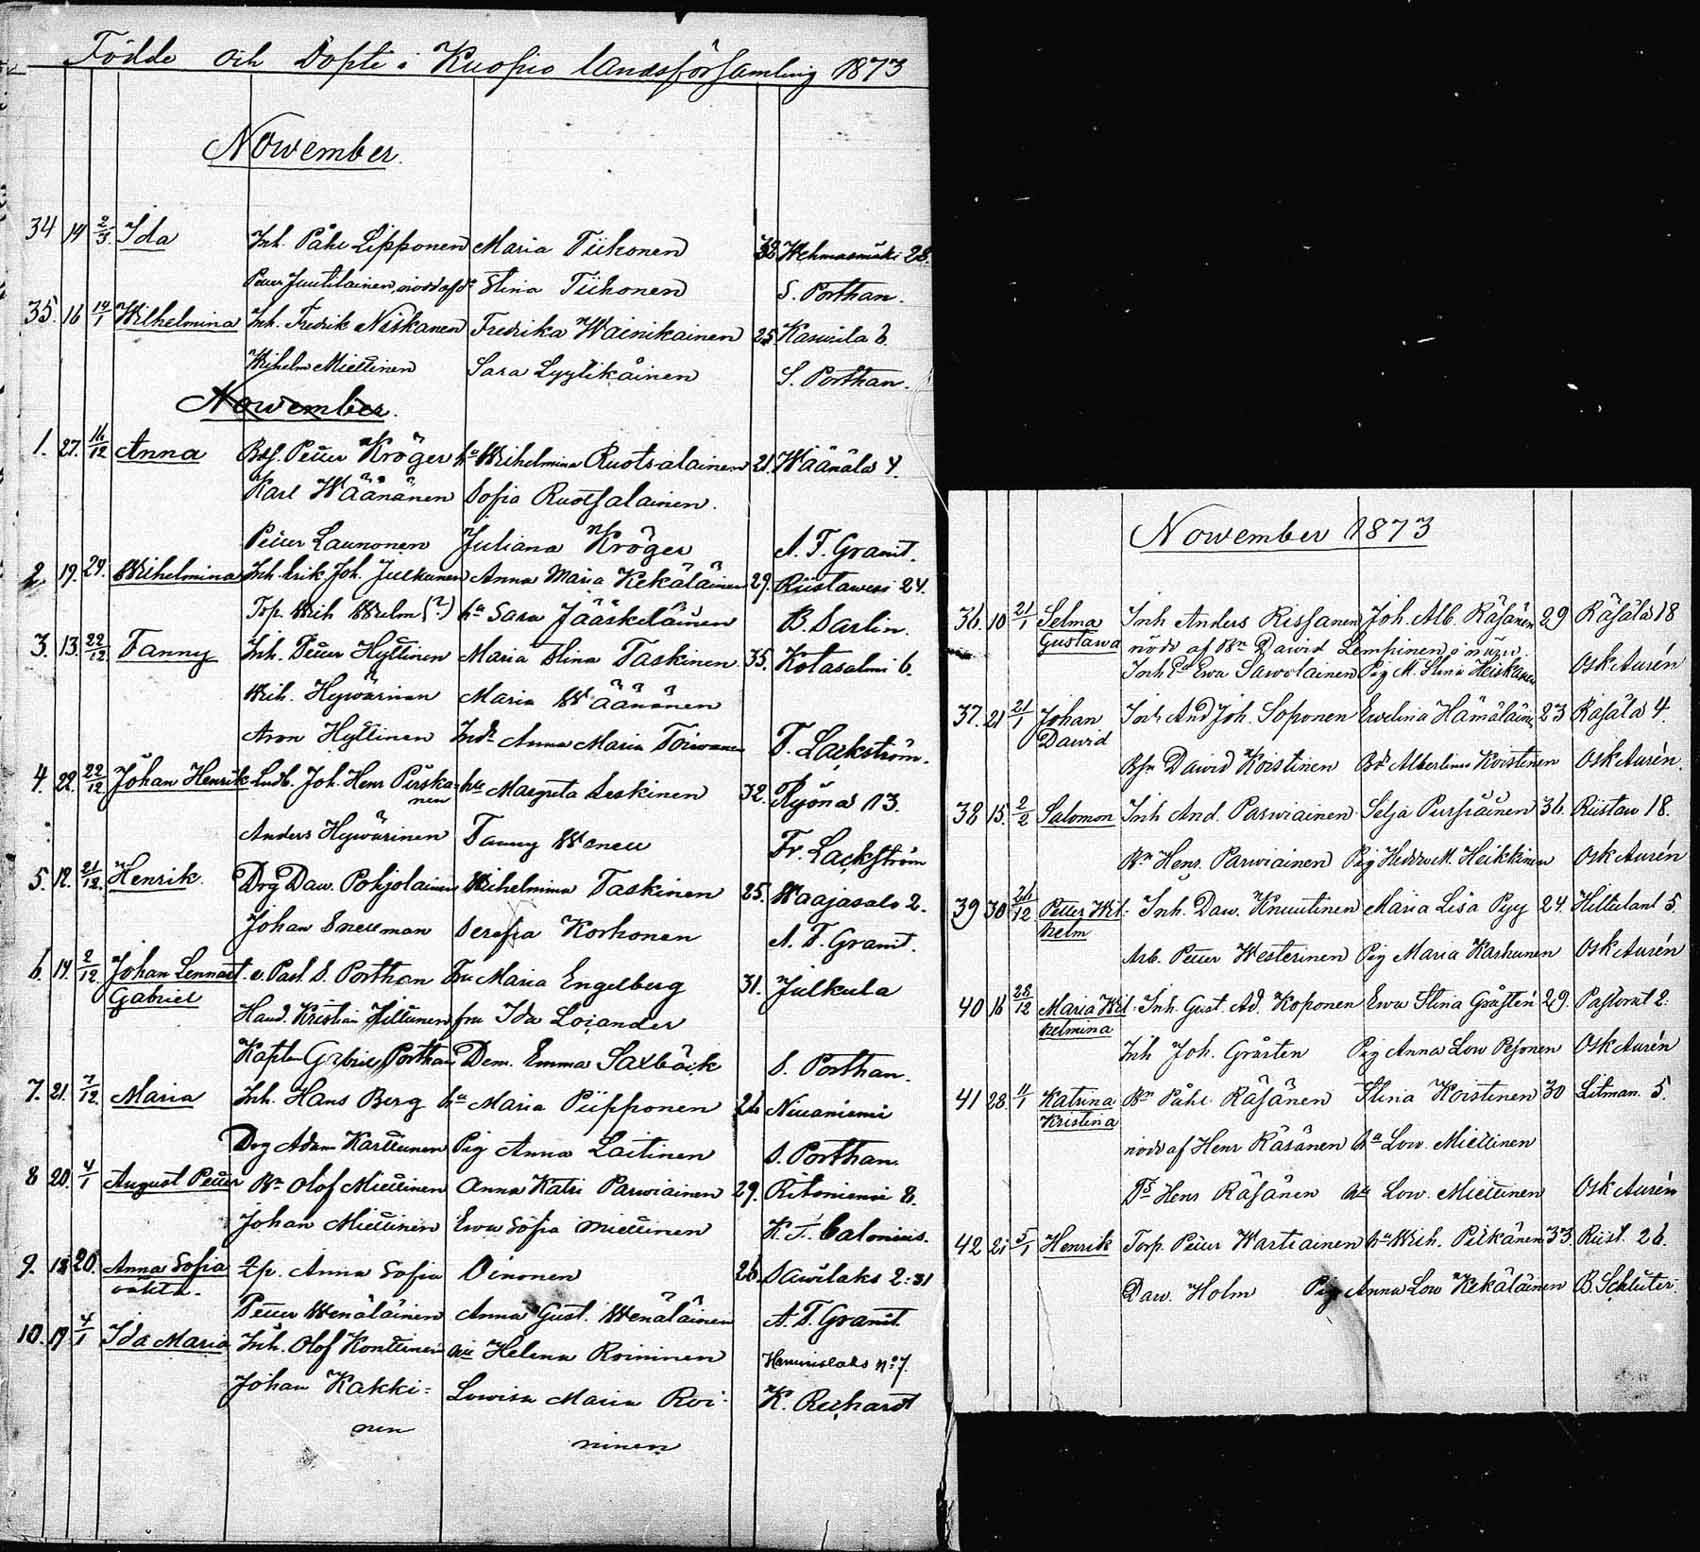 Födde och Döpte i Kuopio landsförsamling 1873
November.
34 14 2/3 Ida Inh. Påhl Lipponen Maria Tiihonen 32 Wehmasmäki 28.
Petter Juutilainen Stina Tiihonen S. Porthan.
35. 16 14/1 Wilhelmina Inh. Fredrik Niskanen Fredrika Wainikainen 25 Kaswila 6.
Wilhelm Miettinen Sara Lyytikäinen S. Porthan.
November.
1. 27. 16/12 Anna Petter Kröger Wilhelmina Ruotsalainen 21. Wäänälä 4.
Karl Wäänänen Sofia Ruotsalainen.
Petter Launonen Juliana Kröger A. T. Granit.
2 19. 29. Wilhelmina Inh. Erik Joh. Julkunen Anna Maria Kekäläinen 29. Riistawesi 24.
Torp. Wilh Wrelm (?) hu Sara Jääskeläinen B. Sarlin.
3. 13. 22/12 Fanny Inh. Petter Hyttinen Maria Stina Taskinen 35. Kotasalmi 6.
Wilh. Hywärinen Maria Wäänänen
Aron Hyttinen Anna Maria Toiwanen F. Lackström.
4. 22. 22/12 Johan Henrik Landb. Joh. Henr Pirska= hu Margreta Leskinen 32. Ryönä 13.
nen
Anders Hywärinen Fanny Fr. Lackström
5. 12. 21/12. Henrik. Drg Daw. Pohjolainen Wilhelmina Taskinen 25. Waajasalo 2.
Johan Snellman Serafia Korhonen A. T. Granit.
6. 14. 2/12 Johan Lennart v. Past. S. Porthan Fru Maria Engelberg 31. Julkula
Gabriel
Hand. Kristian Hiltunen fru Ida Loiander
Kaplan Gabriel Porthan Dem. Emma Saxbäck S. Porthan.
7. 21. 7/12. Maria Inh. Hans Berg hu Maria Piipponen 26 Niuaniemi
Drg Adam Karttunen Pig Anna Laitinen S. Porthan.
8 20. 4/1 August Petter Bn Olof Miettinen Anna Katri Parwiainen 29. Ritoniemi 8.
Johan Miettinen Ewa Sofia Miettinen K. F. Calonius.
9. 18 20. Anna Sofia Qp. Anna Sofia Oinonen 26. Sawilaks 2:31
oäkta.
Petter Wenäläinen Anna Gust. Wenäläinen A. T. Granit.
10. 17 4/1 Ida Maria Inh. Olof Konttinen Helena Roininen Haminalaks No 7.
Johan Kakki= Lowisa Maria Roi= K. Reichardt
nen ninen
November 1873
36. 10 21/1 Selma Inh Anders Rissanen Joh. Alb. Räsänen 29 Räsälä 18
Gustawa nöds af Bn Dawid Lempinen
Inh Ewa Sawolainen Pig M. Stina Heiskanen Osk Aurén
37. 21 21/1 Johan Inh And Joh. Soponen Ewelina Hämäläinen 23 Räsälä 4.
Dawid
Dawid Koistinen Albertina Koistinen Osk Aurén.
38 15. 2/2 Salomon Inh And. Parwiainen Selja Purssiainen 36. Riistaw 18.
Bn Henr. Parwiainen Pig Hedda M. Heikkinen Osk Aurén
39 30 26/12 Petter Wil: Inh. Daw. Knuutinen Maria Lisa Pyy 24. Hiltulanl 5.
helm
Arb. Petter Westerinen Pig Maria Karhunen Osk Aurén
40 16 28/12 Maria Wil: Inh. Gust. Ad. Koponen Ewa Stina Gråstén 29. Pastorat 2.
helmina
Inh Joh. Gråsten Pig Anna Low Pesonen Osk Aurén
41 28. 11/1 Katrina Bn Påhl Räsänen Stina Koistinen 30 Litman. 5.
Kristina
nöds af Henr Räsänen hu Low. Miettinen
Henr Räsänen Low. Miettinen Osk Aurén
42 21 5/1 Henrik Torp. Petter Wartiainen hu Wilh. Pitkänen 33. Riist. 26.
Daw. Holm Pig Anna Low Kekäläinen B. Schlüter.